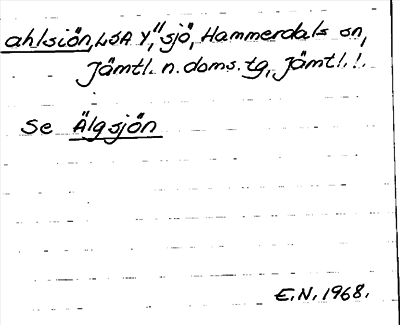 ahlsiön, LSA Y, "sjö, Hammerdals sn,
Jämtl. n. doms. tg, Jämtl. l.
Se Älgsjön
E.N. 1968.